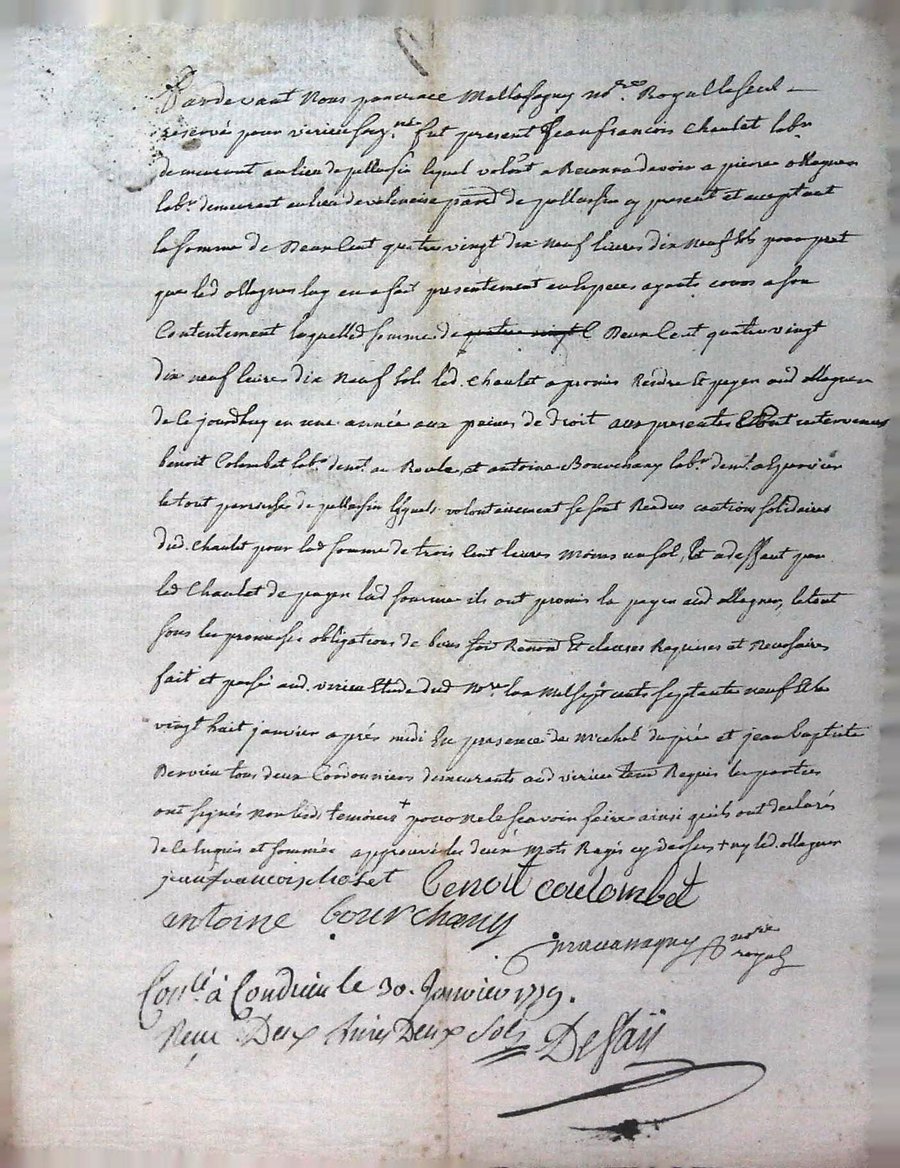 Pardevant Nous pancrace Mallassagny no.re Royal le seul
reservé pour virieu soug.né fut present Jean francois Chaulet lab.r
demeurant au lieu de pellussin lequel volont.t a Reconnu devoir a pierre ollagner
lab.r demeurant au lieu de valencise par.se de pellussin cy present et acceptant
la somme de Deux Cent quatre vingt dix Neuf livres dix Neuf sols pour pret
que led ollagner luy en a fait presentement en especes ayants cours a son
Contentement laquelled somme de quatre vingt C Deux Cent quatre vingt
dix neuf livres dix Neuf sols led. Chaulet a promis Rendre Et payer aud ollagner
de ce jourdhuy en une année aux peines de droit aux presentes Etont intervenus
benoit Colombat lab.r dem.t au Roule, et antoine Bourchany lab.r dem.t a
le tout parroisse de pellussin lesquels volontairement se sont Rendus cautions solidaires
dud. Chaulet pour lad somme de trois Cent livres moins un sol, Et a deffaut par
led Chaulet de payer lad somme ils ont promis la payer aud ollagner, le tout
sous les promesses obligations de biens Renon.s Et clauses Requises et Necessaires
fait et passé aud. virieu Etude dud No.re lan mil sept cents septante neuf Et le
vingt huit janvier après midi En presence de Michel dupré et jean baptiste
Dervieu tous deux Cordonniers demeurants aud virieu tem.s Requis les parties
ont signés non lesd. temoins + pour ne le scavoir faire ainsi quils ont declarés
de ce enquis et sommés approuvé les deux mots Rayés cy dessus + ny led. ollagner
jean francois cholet Benoit Coulombet
antoine bourchany
no.re
royal
Con.lé à Condrieu le 30. Janvier 1779.
Reçu Deux livres Deux sols DeSaÿ